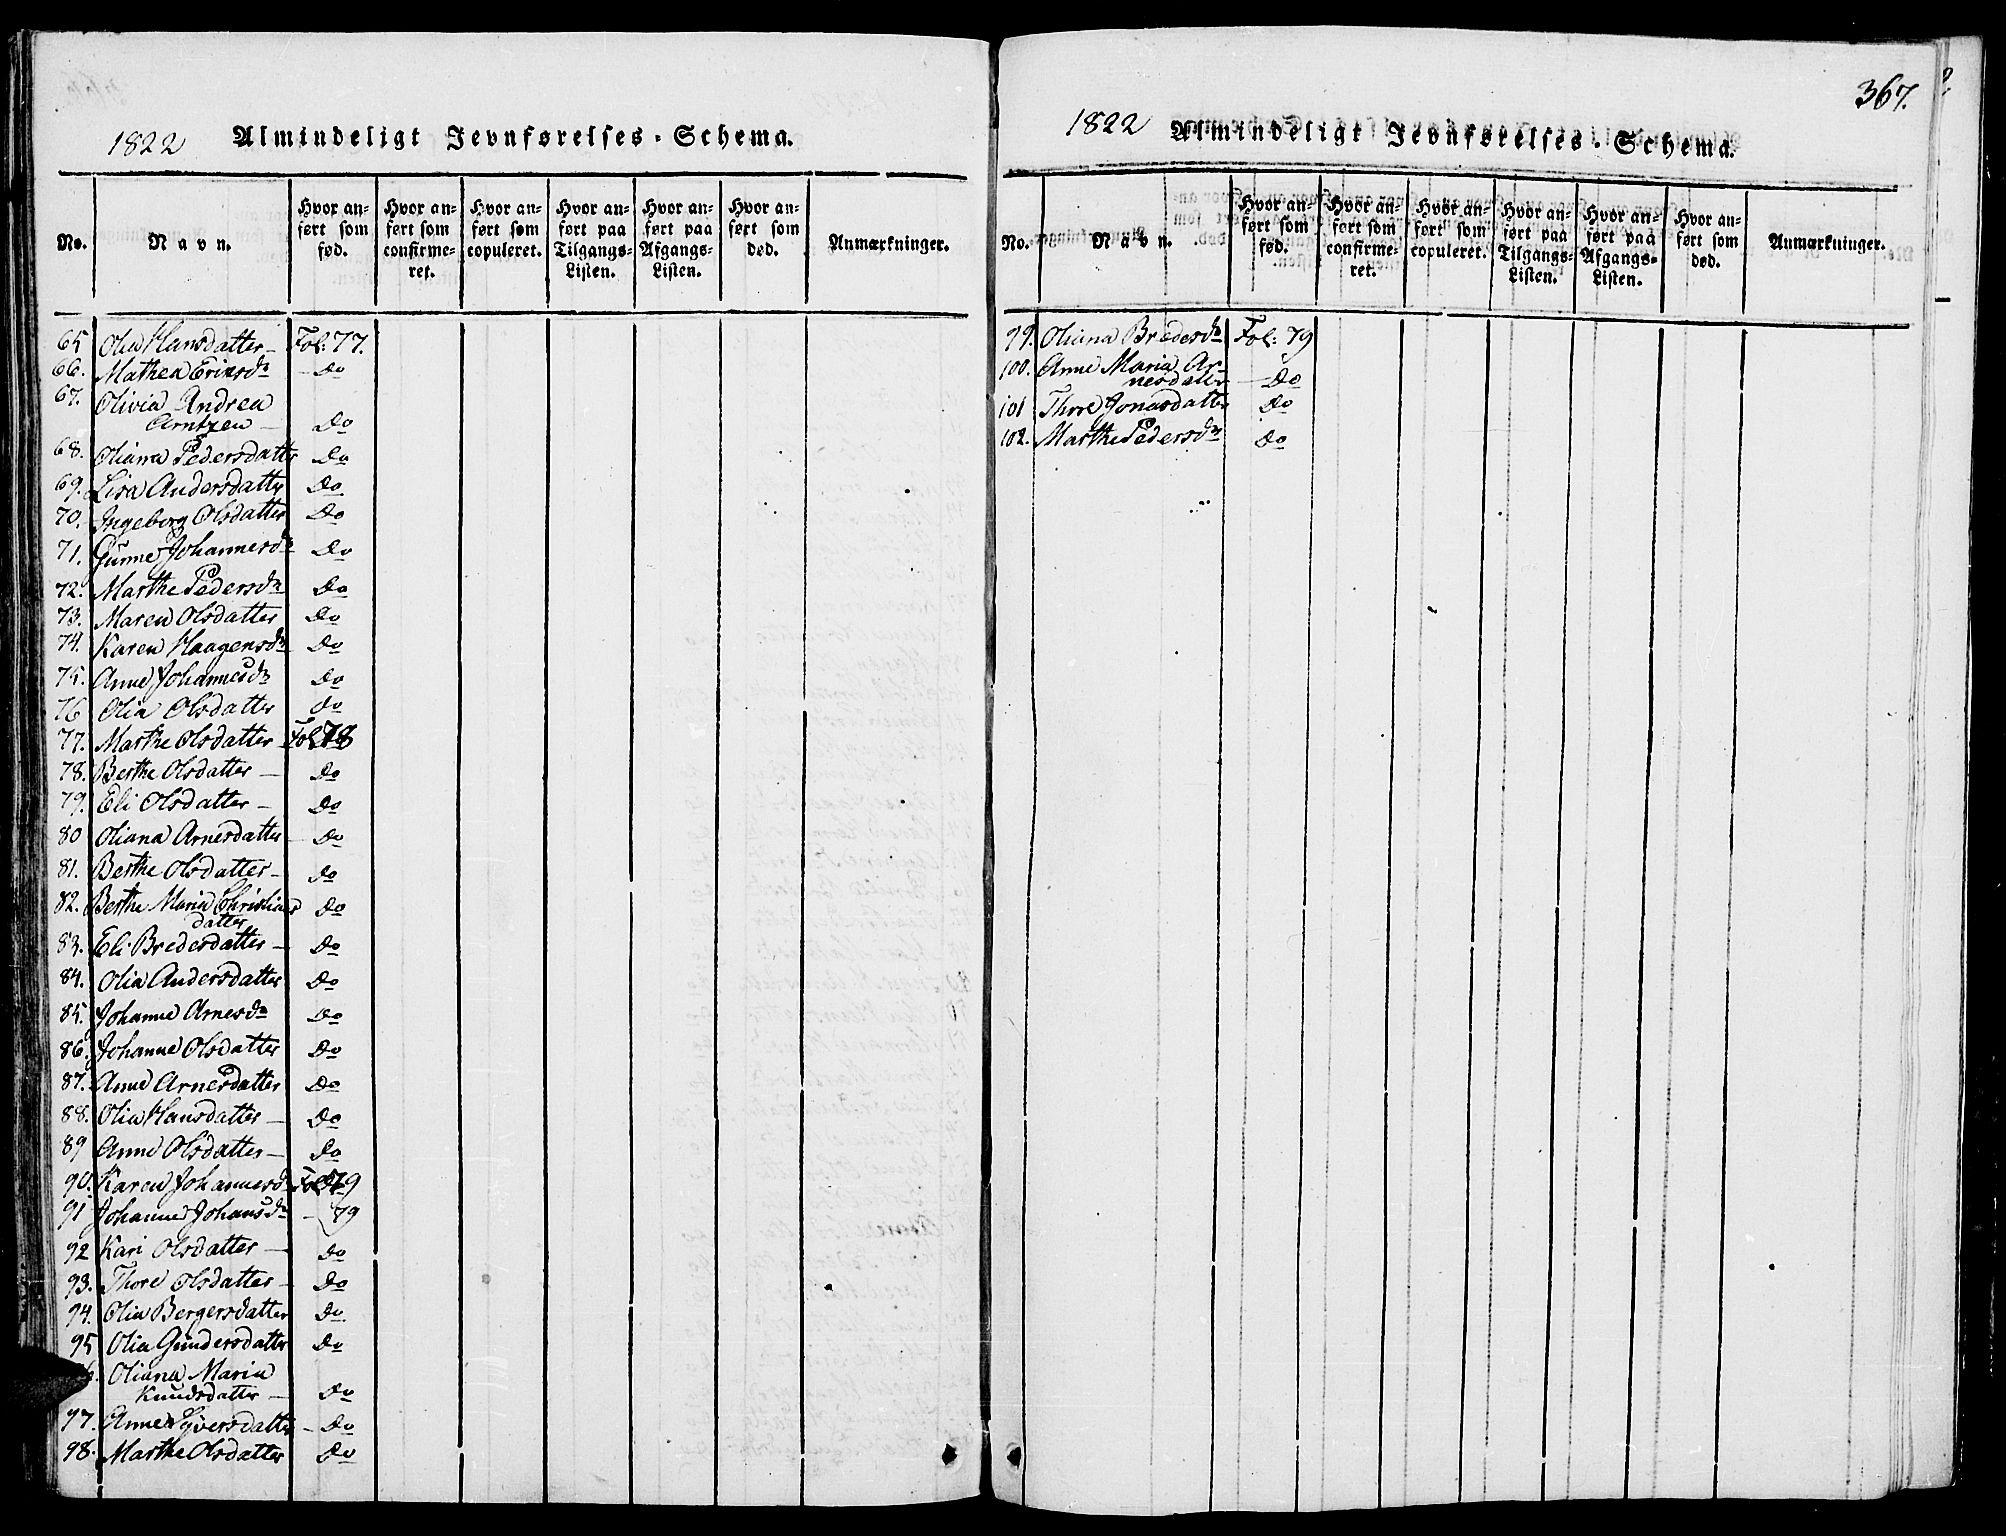 1822 Almindeligt Jevnførelses-Schema.
No. Navn. Hvor anført som fød. Hvor anført som confirmeret. Hvor anført som copuleret. Hvor anført paa Tilgangs-Listen. Hvor anført paa Afgangs-Listen. Hvor anført som død. Anmærkninger.
65 Olia Hansdatter - Fol: 77.
66. Mathea Eriksdr - Do
67. Olivia Andrea
Arntzen - Do
68. Oliana Pedersdatter Do
69. Lisa Andersdatter Do
70. Ingeborg Olsdatter Do
71. Gunne Johannesdr Do
72. Marthe Pedersdr Do
73. Maren Olsdatter Do
74. Karen Haagensdr Do
75. Anne Johannesdr Do
76 Olia Olsdatter Do
77. Marthe Olsdatter - Fol 78
78. Berthe Olsdatter - Do
79. Eli Olsdatter - Do
80 Oliana Arnesdatter - Do
81. Berthe Olsdatter - Do
82. Berthe Maria Christians
datter Do
83. Eli Bredesdatter - Do
84. Olia Andersdatter Do
85. Johanne Arnesdr Do
86. Johanne Olsdatter Do
87. Anne Arnesdatter Do
88. Olia Hansdatter - Do
89 Anne Olsdatter - Do
90. Karen Johannesdr Fol 79
91 Johanne Johansdr - 79
92 Kari Olsdatter - Do
93. Thore Olsdatter - Do
94. Olia Bergersdatter Do
95 Olia Gundersdatter Do
6. Oliana Maria
Knudsdatter - Do
97. Anne Syversdatter - Do
98. Marthe Olsdatter Do
367.
1822 Almindeligt Jevnførelses-Schema.
No. Navn. Hvor anført som fød. Hvor anført som confirmeret. Hvor anført som copuleret. Hvor anført paa Tilgangs-Listen. Hvor anført paa Afgangs-Listen. Hvor anført som død. Anmærkninger.
99. Oliana Bredesdr Fol: 79
100. Anne Maria Ar-
nesdatter - Do
101 Thore Jonasdatter Do
102. Marthe Pedersdr Do